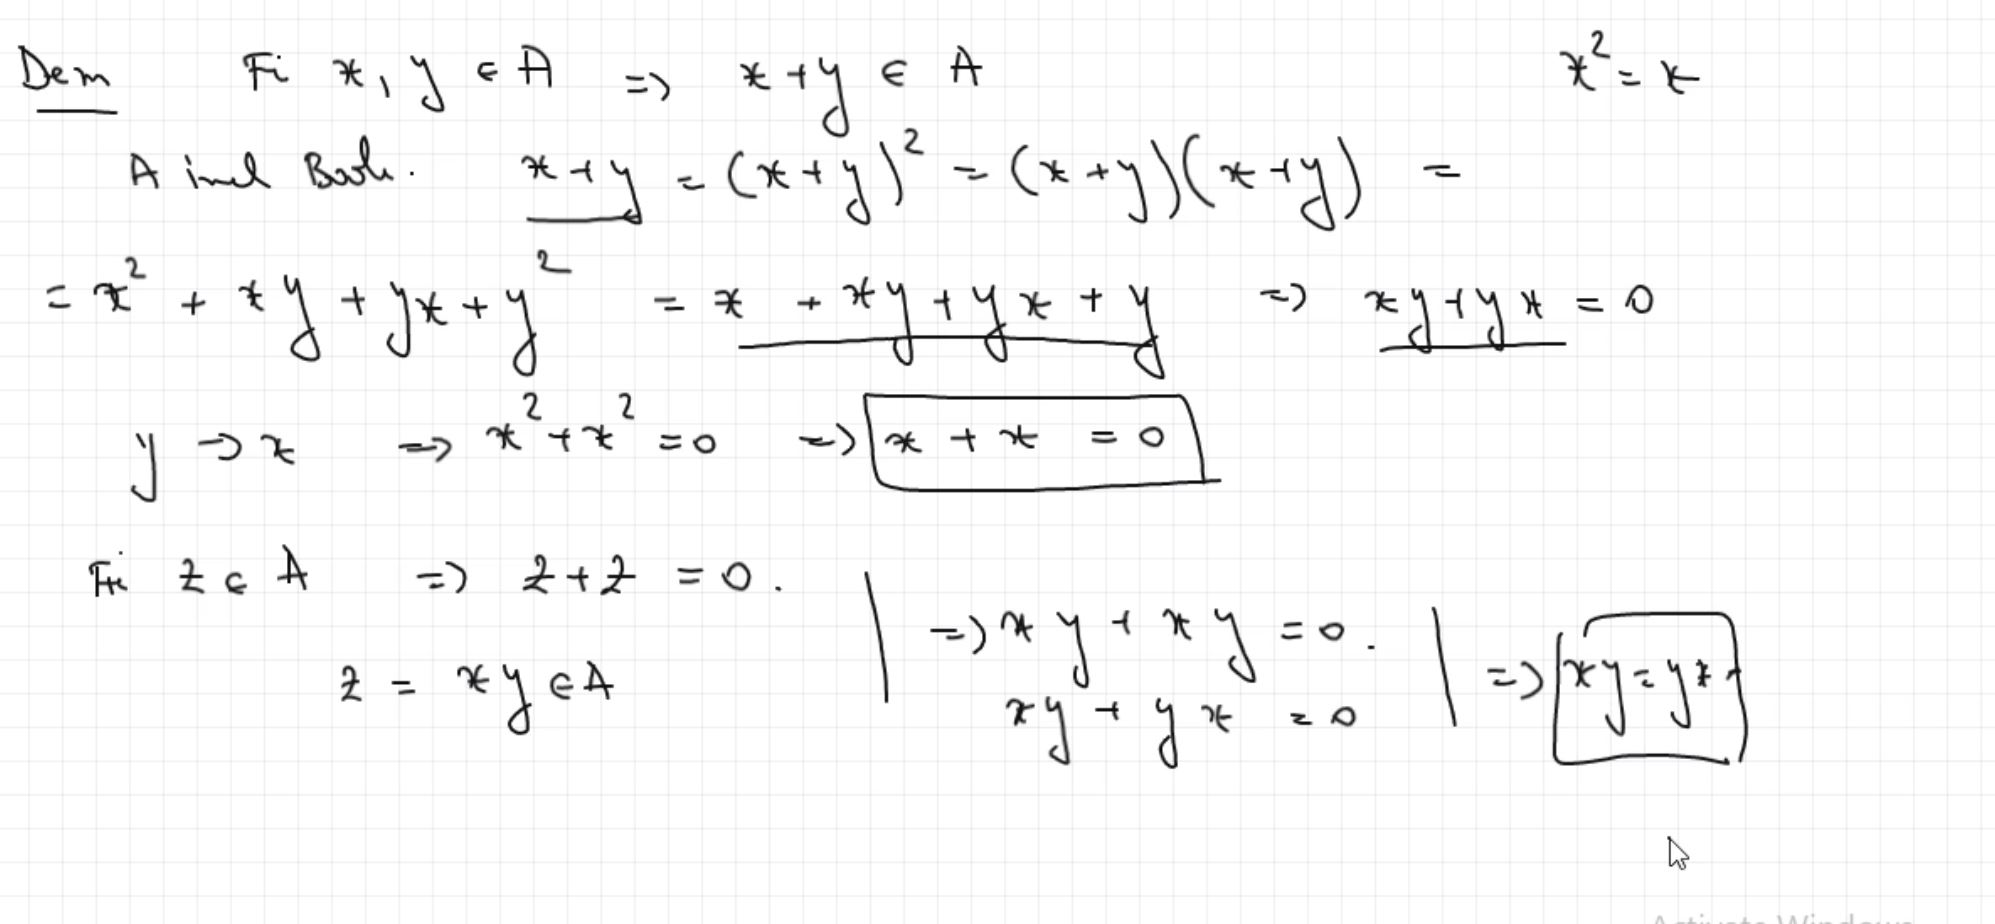 Dem Fie x, y ∈ A => x + y ∈ A x² = x
A inel Boole. x + y = (x + y)² = (x + y)(x + y) =
= x² + xy + yx + y² = x + xy + yx + y => xy + yx = 0
y -> x => x² + x² = 0 => x + x = 0
Fie z ∈ A => z + z = 0.
z = xy ∈ A
=> xy + xy = 0.
xy + yx = 0
=> xy = yx
Activate Windows